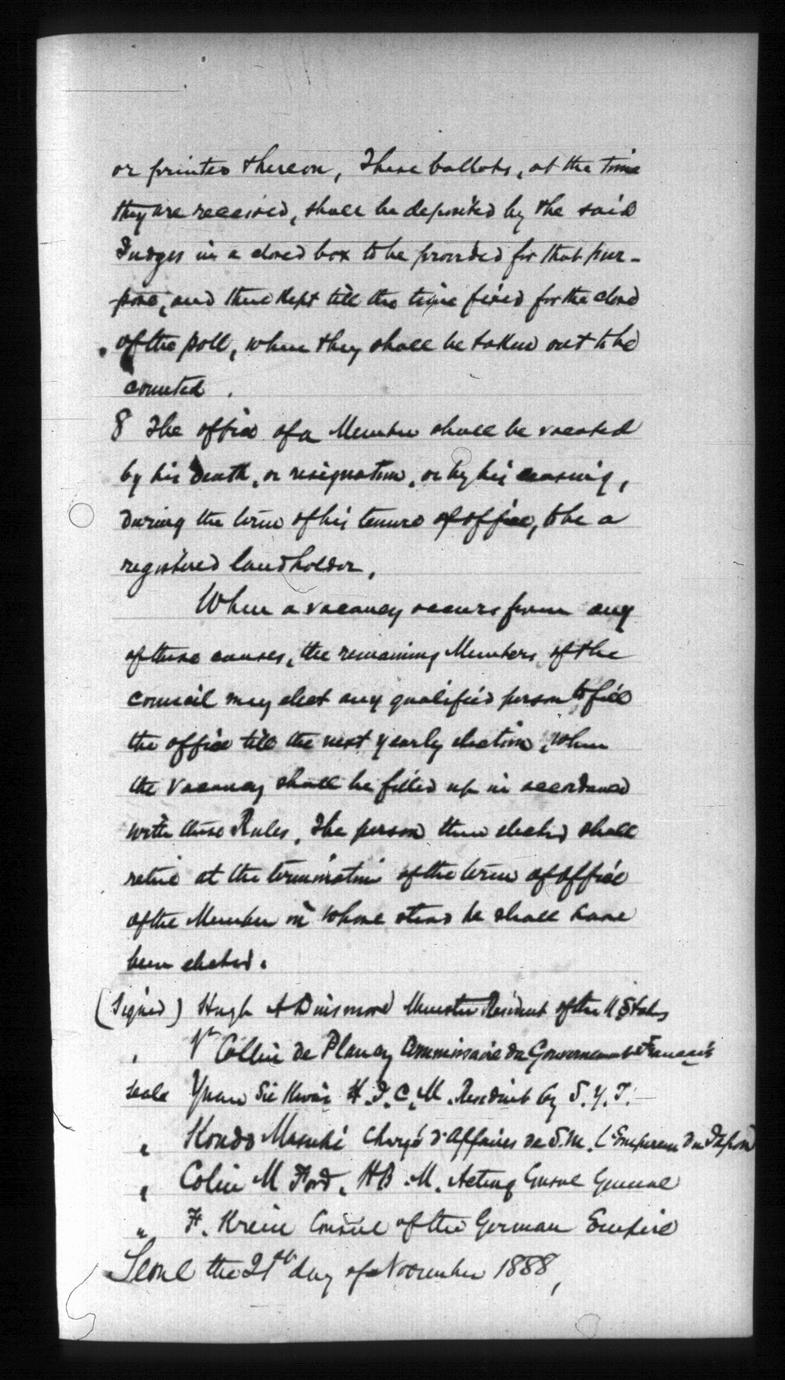 or printed thereon, These ballots, at the time
they are received, shall be deposited by the said
Judges in a closed box to be provided for that pur-
pose, and there kept till the time fixed for the close
of the poll, when they shall be taken out to be
counted.
8 The office of a Member shall be vacated
by his Death, or resignation, or by his ceasing,
during the term of his tenure of office, to be a
registered landholder.
When a vacancy occurs from any
of these causes, the remaining Members of the
council may elect any qualified person to fill
the office till the next yearly election, when
the vacancy shall be filled up in accordance
with these Rules. The person then elected shall
retire at the termination of the term of office
of the Member in whose stead he shall have
been elected.
(Signed) Hugh A Dinsmore Minister Resident of the U States
" Collin de Plancy Commissaire du Gouvernement Français
Seald Yuan Sie Kwai H.I.C.M. Resident by S.Y.T.
" Kondo Masuki Chargé d'Affaires de S.M. l'Empereur du Japon
" Colin M Ford, H B. M. Acting Consul General
" F. Krein Consul of the German Empire
Seoul the 21st day of November 1888,